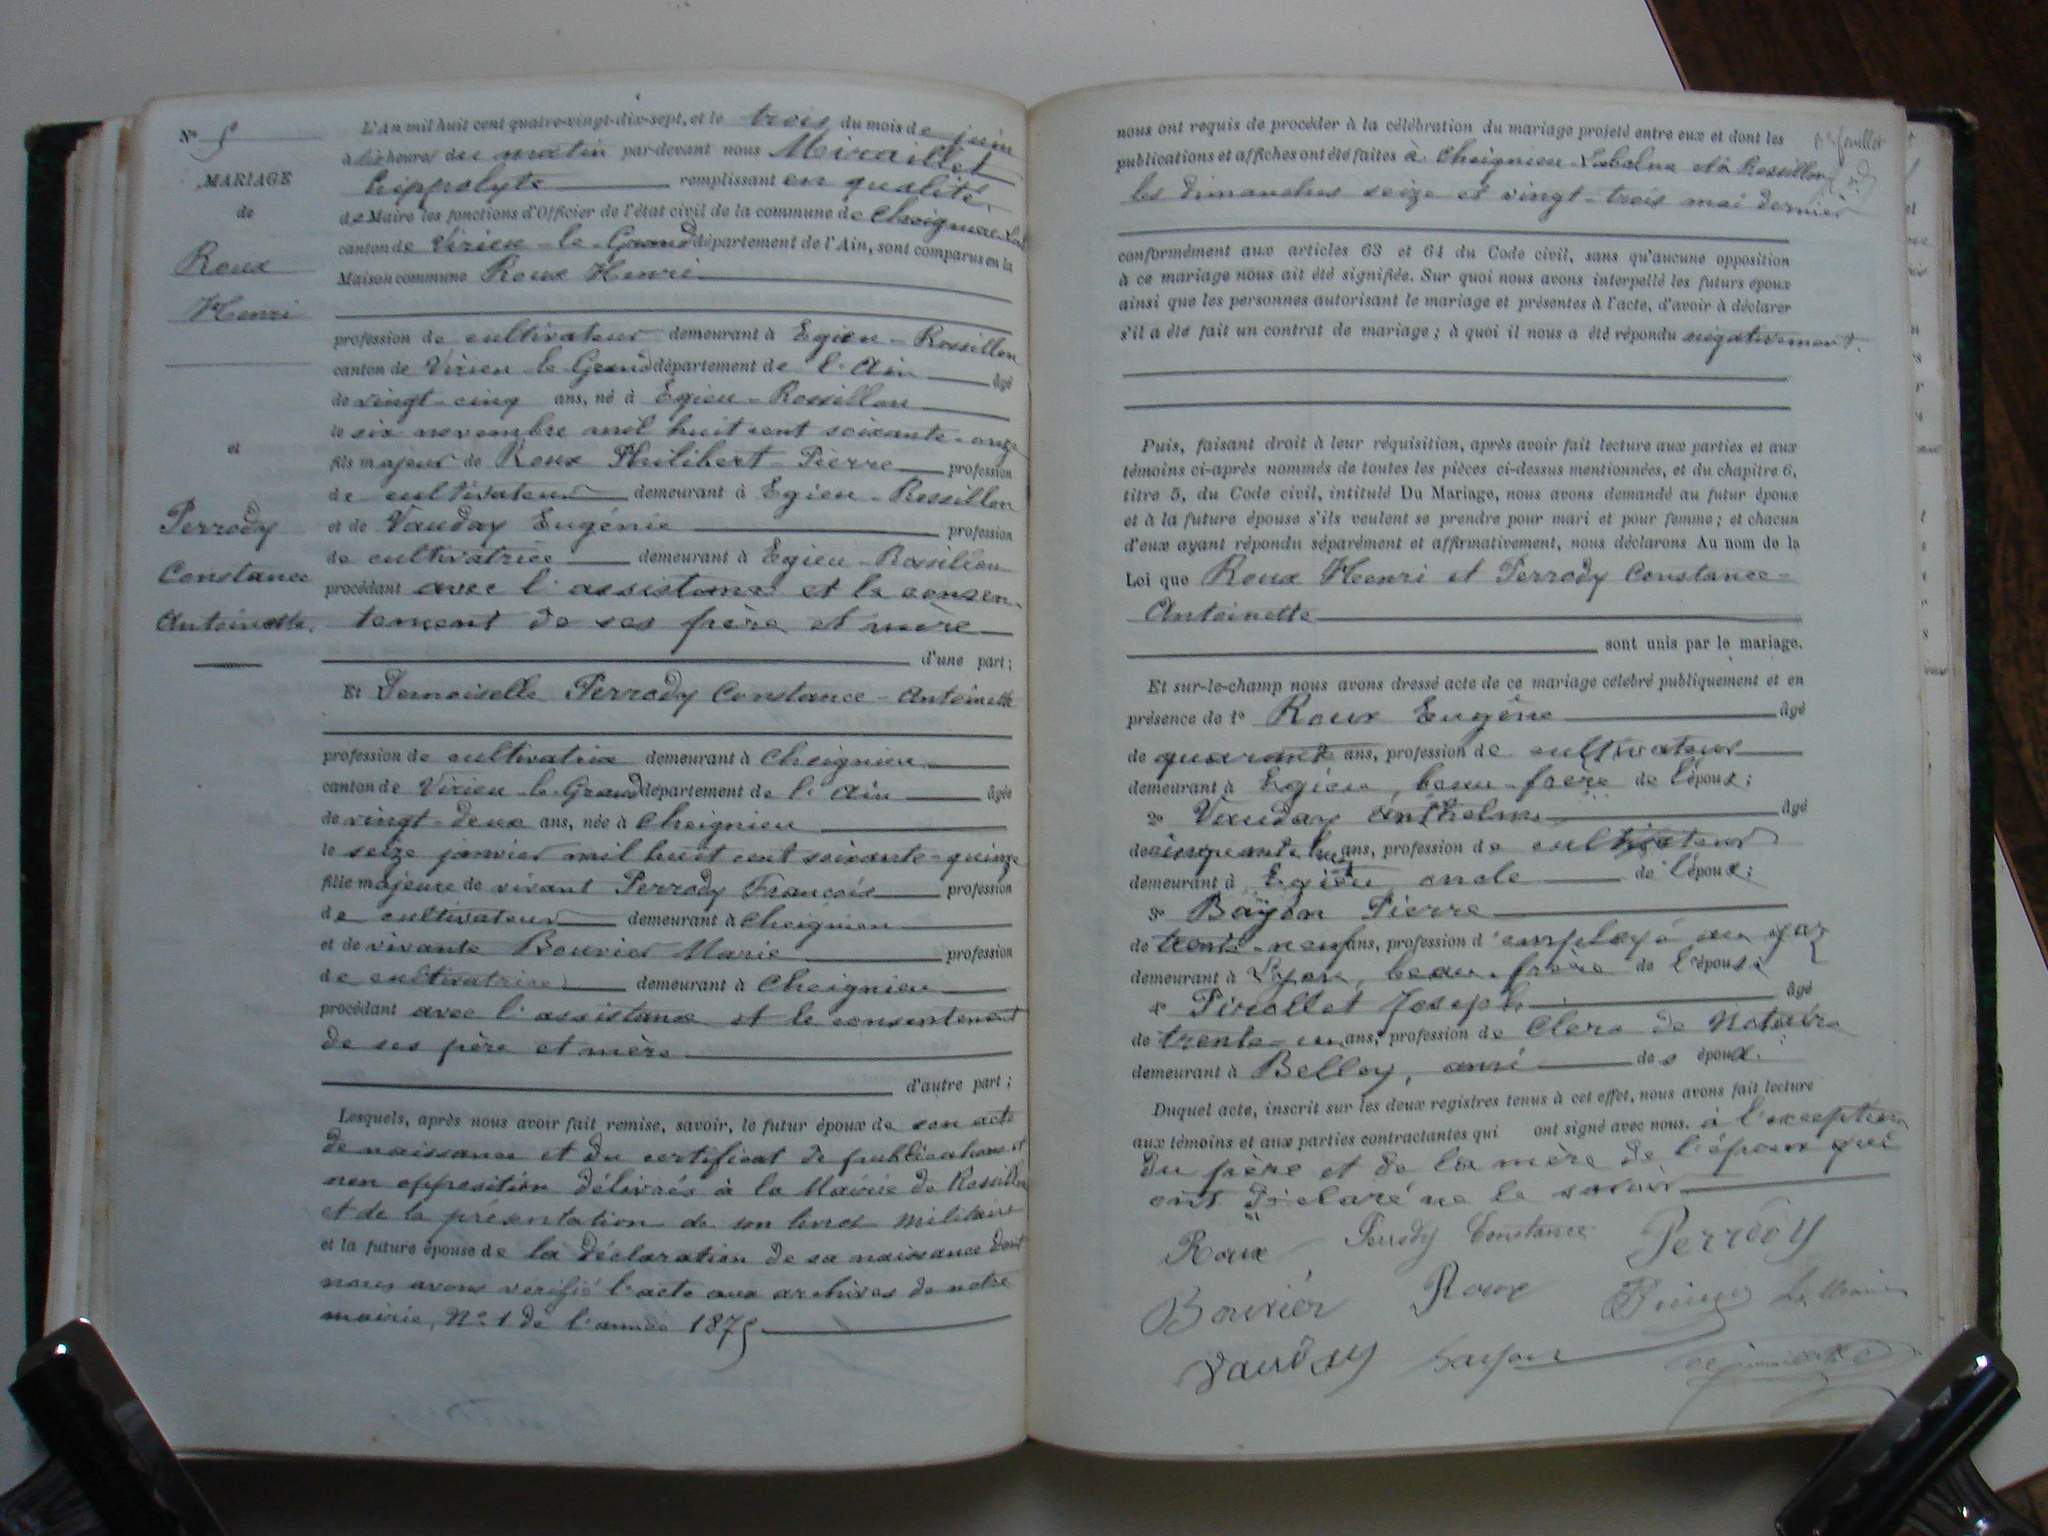 N° 5
MARIAGE
de
Roux
Henri
et
Perrody
Constance
Antoinette.
L'An mil huit cent quatre-vingt-dix-sept, et le trois du mois de juin
à heures du matin par-devant nous Miraillet
hippolyte remplissant en qualité
de Maire les fonctions d'Officier de l'état civil de la commune de Cheignieu-Lab
canton de Virieu-le-Grand département de l'Ain, sont comparus en la
Maison commune Roux Henri
profession de cultivateur demeurant à Egieu-Rossillon
canton de Virieu le Grand département de l'Ain âgé
de vingt-cinq ans, né à Egieu-Rossillon
le six novembre mil huit cent soixante-onze
fils majeur de Roux Philibert-Pierre profession
de cultivateur demeurant à Egieu-Rossillon
et de Vauday Eugénie profession
de cultivatrice demeurant à Egieu-Rossillon
procédant avec l'assistance et le consen-
tement de ses frère et mère
d'une part;
Et Demoiselle Perrody Constance-Antoinette
profession de cultivatrice demeurant à Cheignieu
canton de Virieu-le-Grand département de l'Ain âgée
de vingt-deux ans, née à Cheignieu
le seize janvier mil huit cent soixante-quinze
fille majeure de vivant Perrody François profession
de cultivateur demeurant à Cheignieu
et de vivante Bouvier Marie profession
de cultivatrice demeurant à Cheignieu
procédant avec l'assistance et le consentement
de ses père et mère
d'autre part;
Lesquels, après nous avoir fait remise, savoir, le futur époux de son acte
de naissance et du certificat de publications et
non opposition délivrés à la Mairie de Rossillon
et de la présentation de son livret militaire
et la future épouse de la déclaration de sa naissance dont
nous avons vérifié l'acte aux archives de notre
mairie, N° 1 de l'année 1875
nous ont requis de procéder à la célébration du mariage projeté entre eux et dont les
publications et affiches ont été faites à Cheignieu-Labalme et à Rossillon
les dimanches seize et vingt-trois mai dernier
conformément aux articles 63 et 64 du Code civil, sans qu'aucune opposition
à ce mariage nous ait été signifiée. Sur quoi nous avons interpellé les futurs époux
ainsi que les personnes autorisant le mariage et présentes à l'acte, d'avoir à déclarer
s'il a été fait un contrat de mariage; à quoi il nous a été répondu négativement.
Puis, faisant droit à leur réquisition, après avoir fait lecture aux parties et aux
témoins ci-après nommés de toutes les pièces ci-dessus mentionnées, et du chapitre 6,
titre 5, du Code civil, intitulé Du Mariage, nous avons demandé au futur époux
et à la future épouse s'ils veulent se prendre pour mari et pour femme; et chacun
d'eux ayant répondu séparément et affirmativement, nous déclarons Au nom de la
Loi que Roux Henri et Perrody Constance-
Antoinette
sont unis par le mariage.
Et sur-le-champ nous avons dressé acte de ce mariage célébré publiquement et en
présence de 1° Roux Eugène âgé
de quarante ans, profession de cultivateur
demeurant à Egieu, beau-frère de l'époux;
2° Vauday Anthelme âgé
de cinquante huit ans, profession de cultivateur
demeurant à Egieu oncle de l'époux;
3° Bayon Pierre
de trente-neuf ans, profession d'employé au gaz
demeurant à Lyon, beau-frère de l'épouse
4° Pirollet Joseph âgé
de trente-un ans, profession de Clerc de Notaire
demeurant à Belley, ami des époux.
Duquel acte, inscrit sur les deux registres tenus à cet effet, nous avons fait lecture
aux témoins et aux parties contractantes qui ont signé avec nous. à l'exception
du père et de la mère de l'époux qui
ont déclaré ne le savoir
Roux Perrody Constance Perrody
Bouvier Roux Le Maire
Vauday Bayon